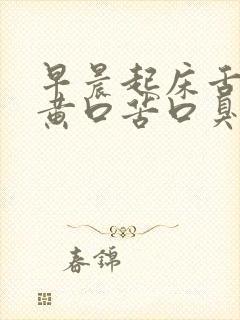 早晨起床舌
黄口苦口臭
春锦